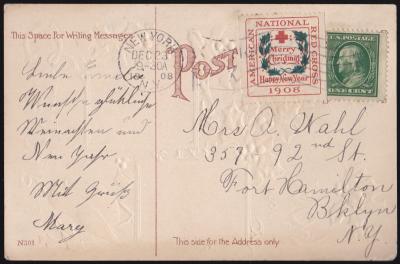 This Space for Writing Messages
POST
NEW YORK
DEC 23
30A
08
N.Y.
AMERICAN NATIONAL RED CROSS
Merry
Christmas
Happy New Year
1908
ONE CENT
Liebe
Wünsche glückliche
Weinachten und
Neu Jahr.
Mit Gruß
Mary
Mrs A. Wahl
357 92nd St.
Fort Hamilton
Bklyn
N.Y.
N301
This side for the Address only